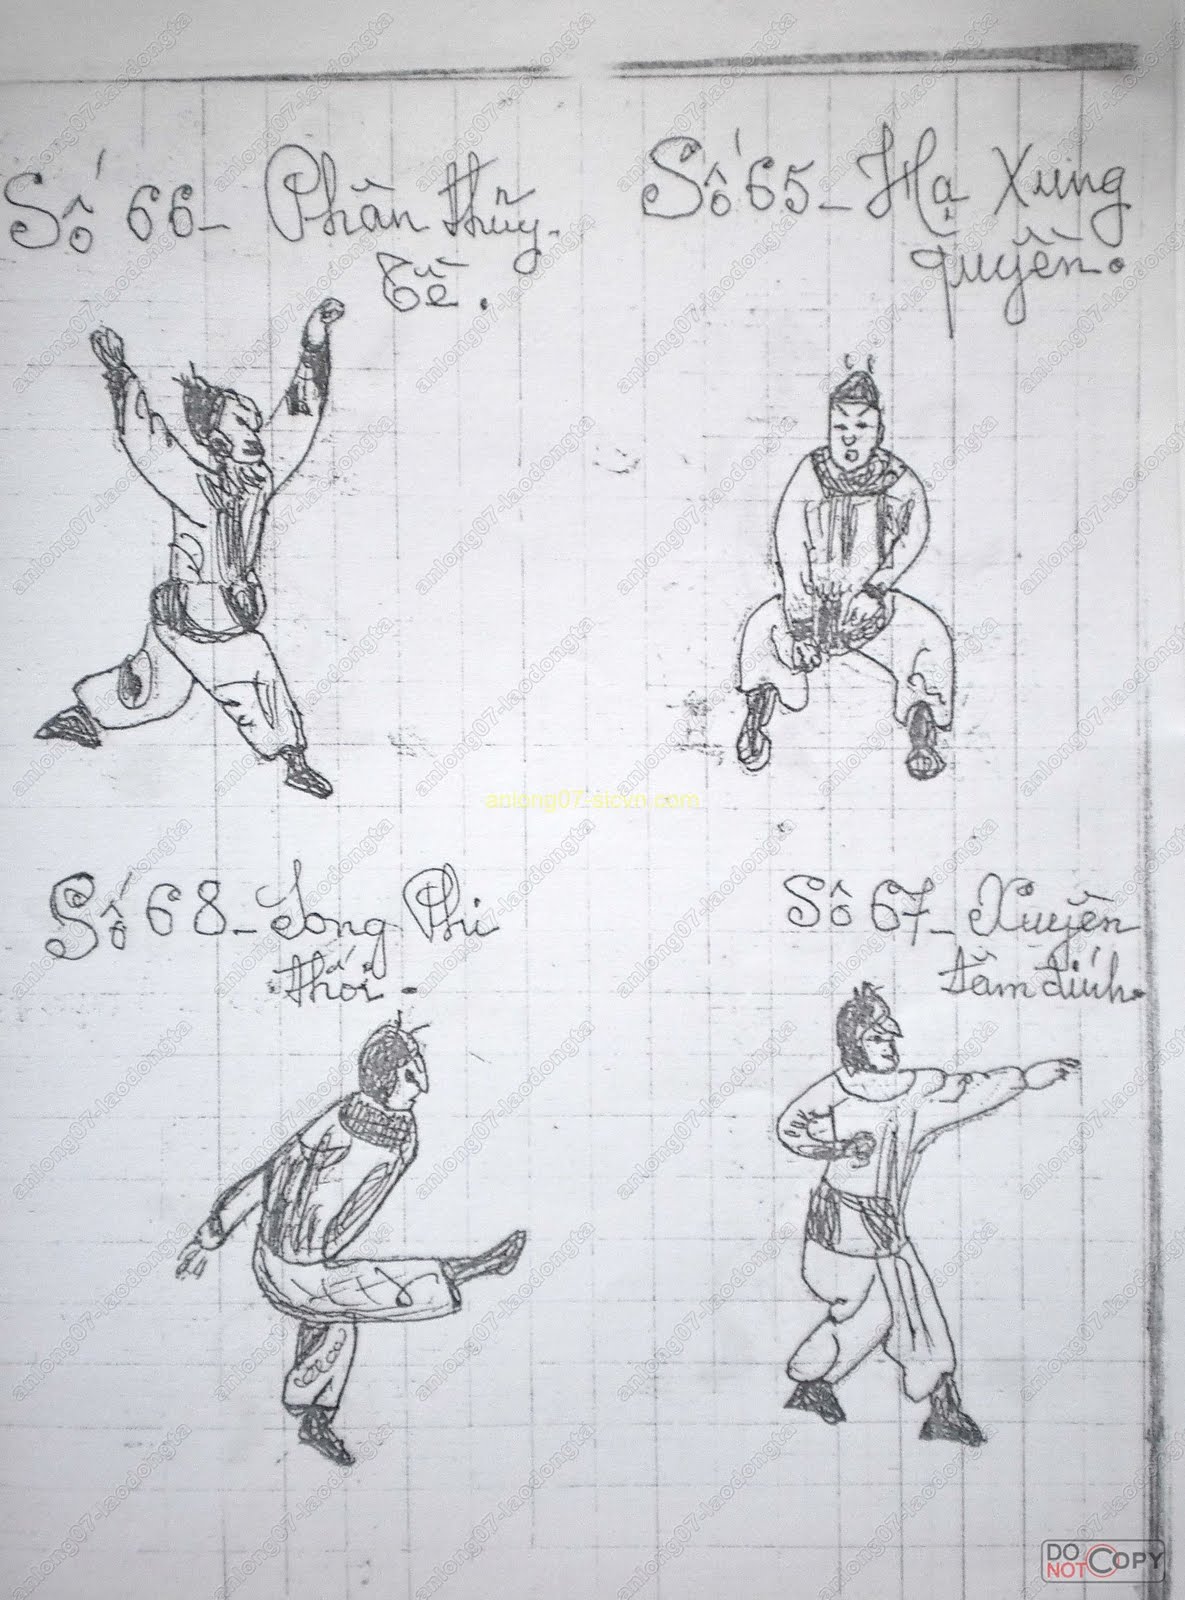 Số 66_ Phân thủy
Bế.
Số 65_ Hạ Xung
quyền.
anlong07-stcvn.com
Số 68_ Song Phi
thối.
Số 67_ Xuyên
tâm đính.
DO NOT COPY
anlong07-laodongta